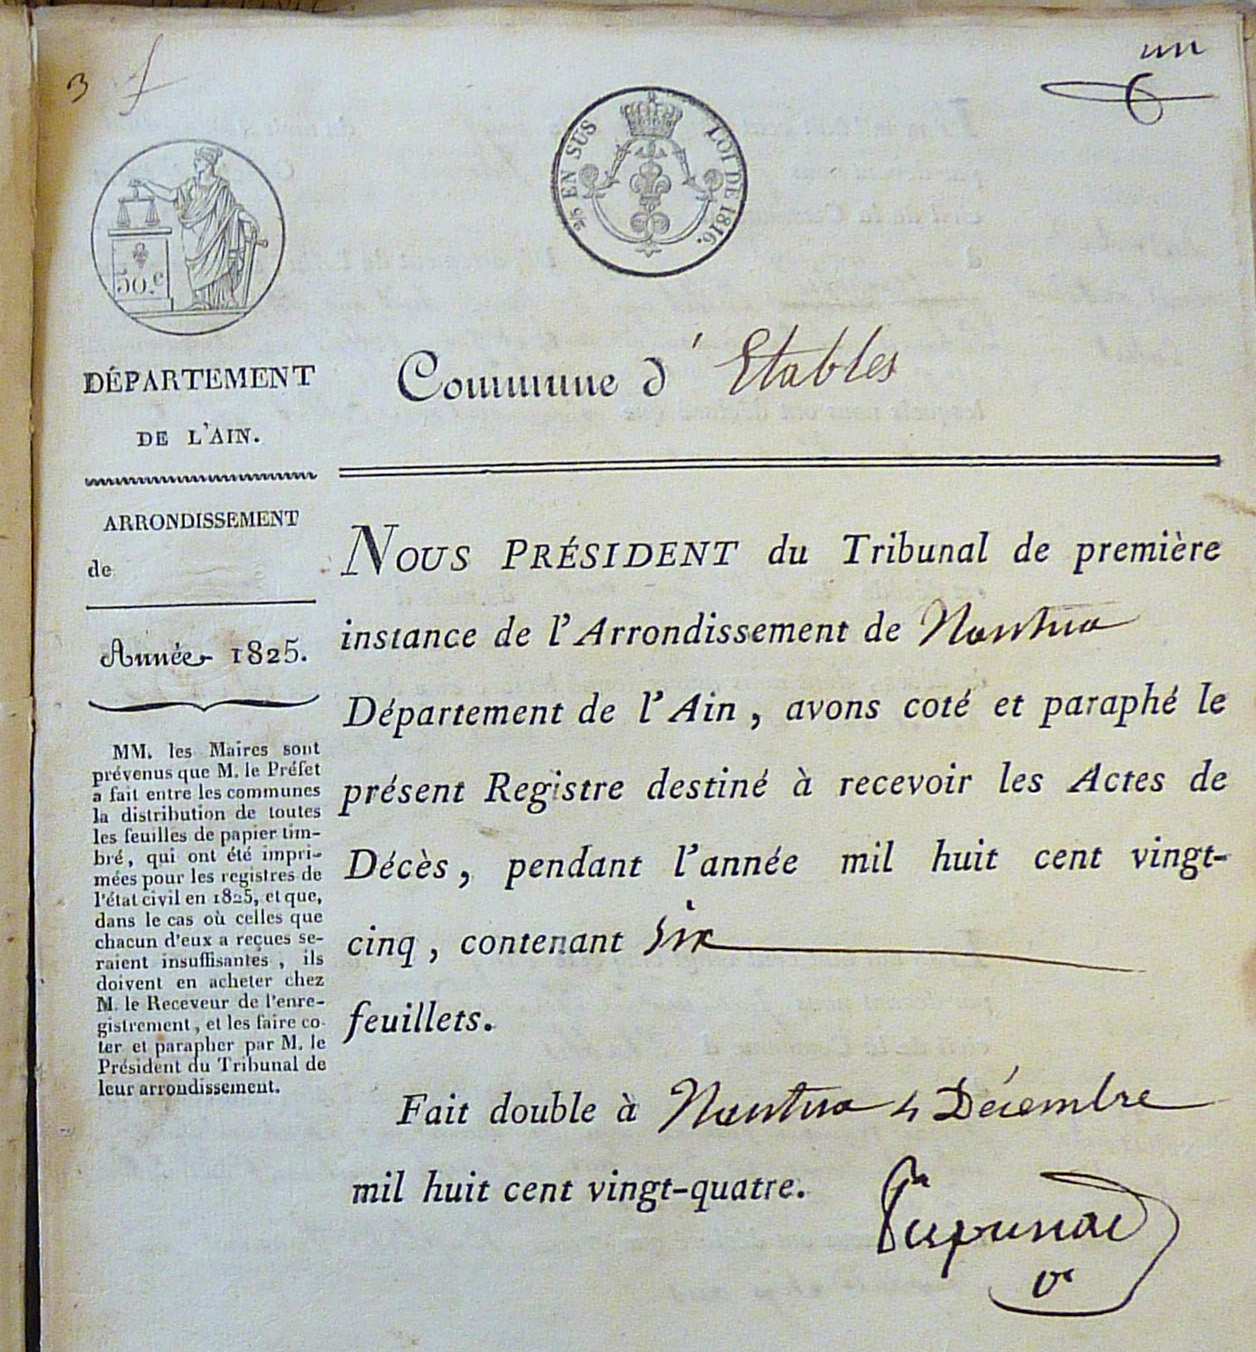 3
un
6
25 EN SUS LOI DE 1816.
50.c
DÉPARTEMENT
DE L'AIN.
ARRONDISSEMENT
de
Année 1825.
MM. les Maires sont
prévenus que M. le Préfet
a fait entre les communes
la distribution de toutes
les feuilles de papier tim-
bré, qui ont été impri-
mées pour les registres de
l'état civil en 1825, et que,
dans le cas où celles que
chacun d'eux a reçues se-
raient insuffisantes, ils
doivent en acheter chez
M. le Receveur de l'enre-
gistrement, et les faire co-
ter et parapher par M. le
Président du Tribunal de
leur arrondissement.
Commune d'Etables
NOUS PRÉSIDENT du Tribunal de première
instance de l'Arrondissement de Nantua
Département de l'Ain, avons coté et paraphé le
présent Registre destiné à recevoir les Actes de
Décès, pendant l'année mil huit cent vingt-
cinq, contenant six
feuillets.
Fait double à Nantua 4 Décembre
mil huit cent vingt-quatre.